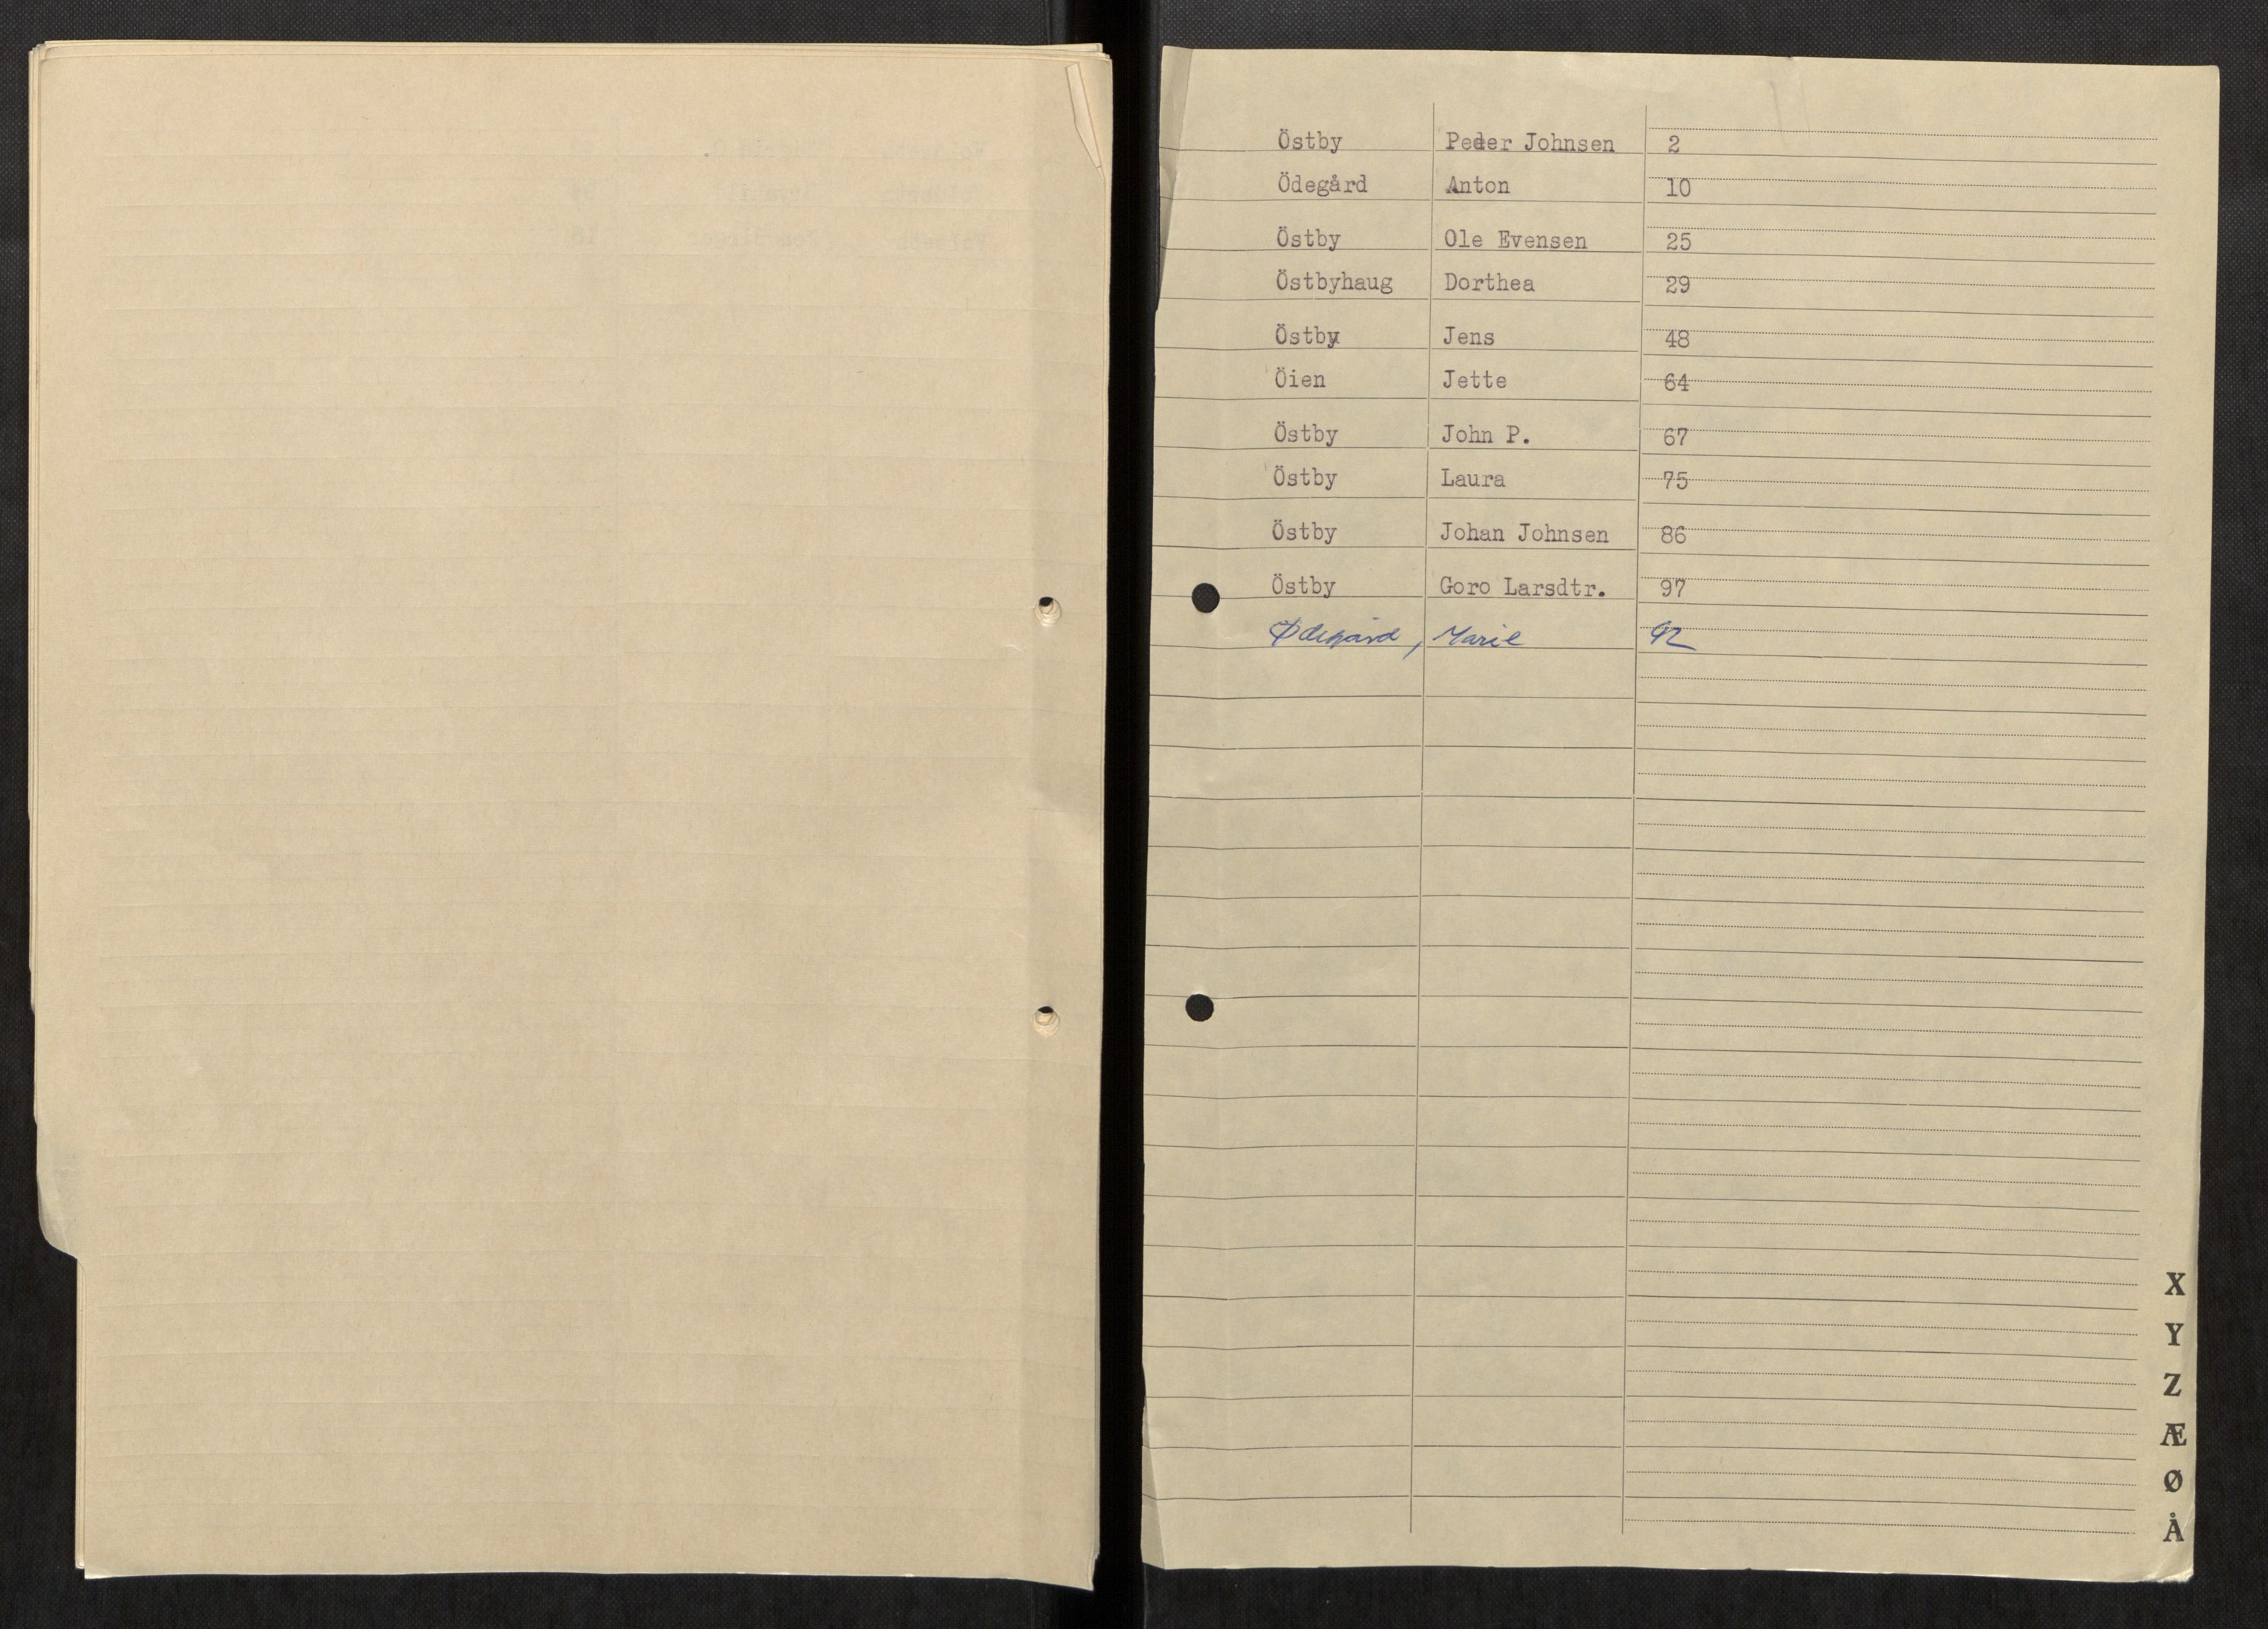 Östby Peder Johnsen 2
Ödegård Anton 10
Östby Ole Evensen 25
Östbyhaug Dorthea 29
Östby Jens 48
Öien Jette 64
Östby John P. 67
Östby Laura 75
Östby Johan Johnsen 86
Östby Goro Larsdtr. 97
Ødegård, Marie 92
X
Y
Z
Æ
Ø
Å